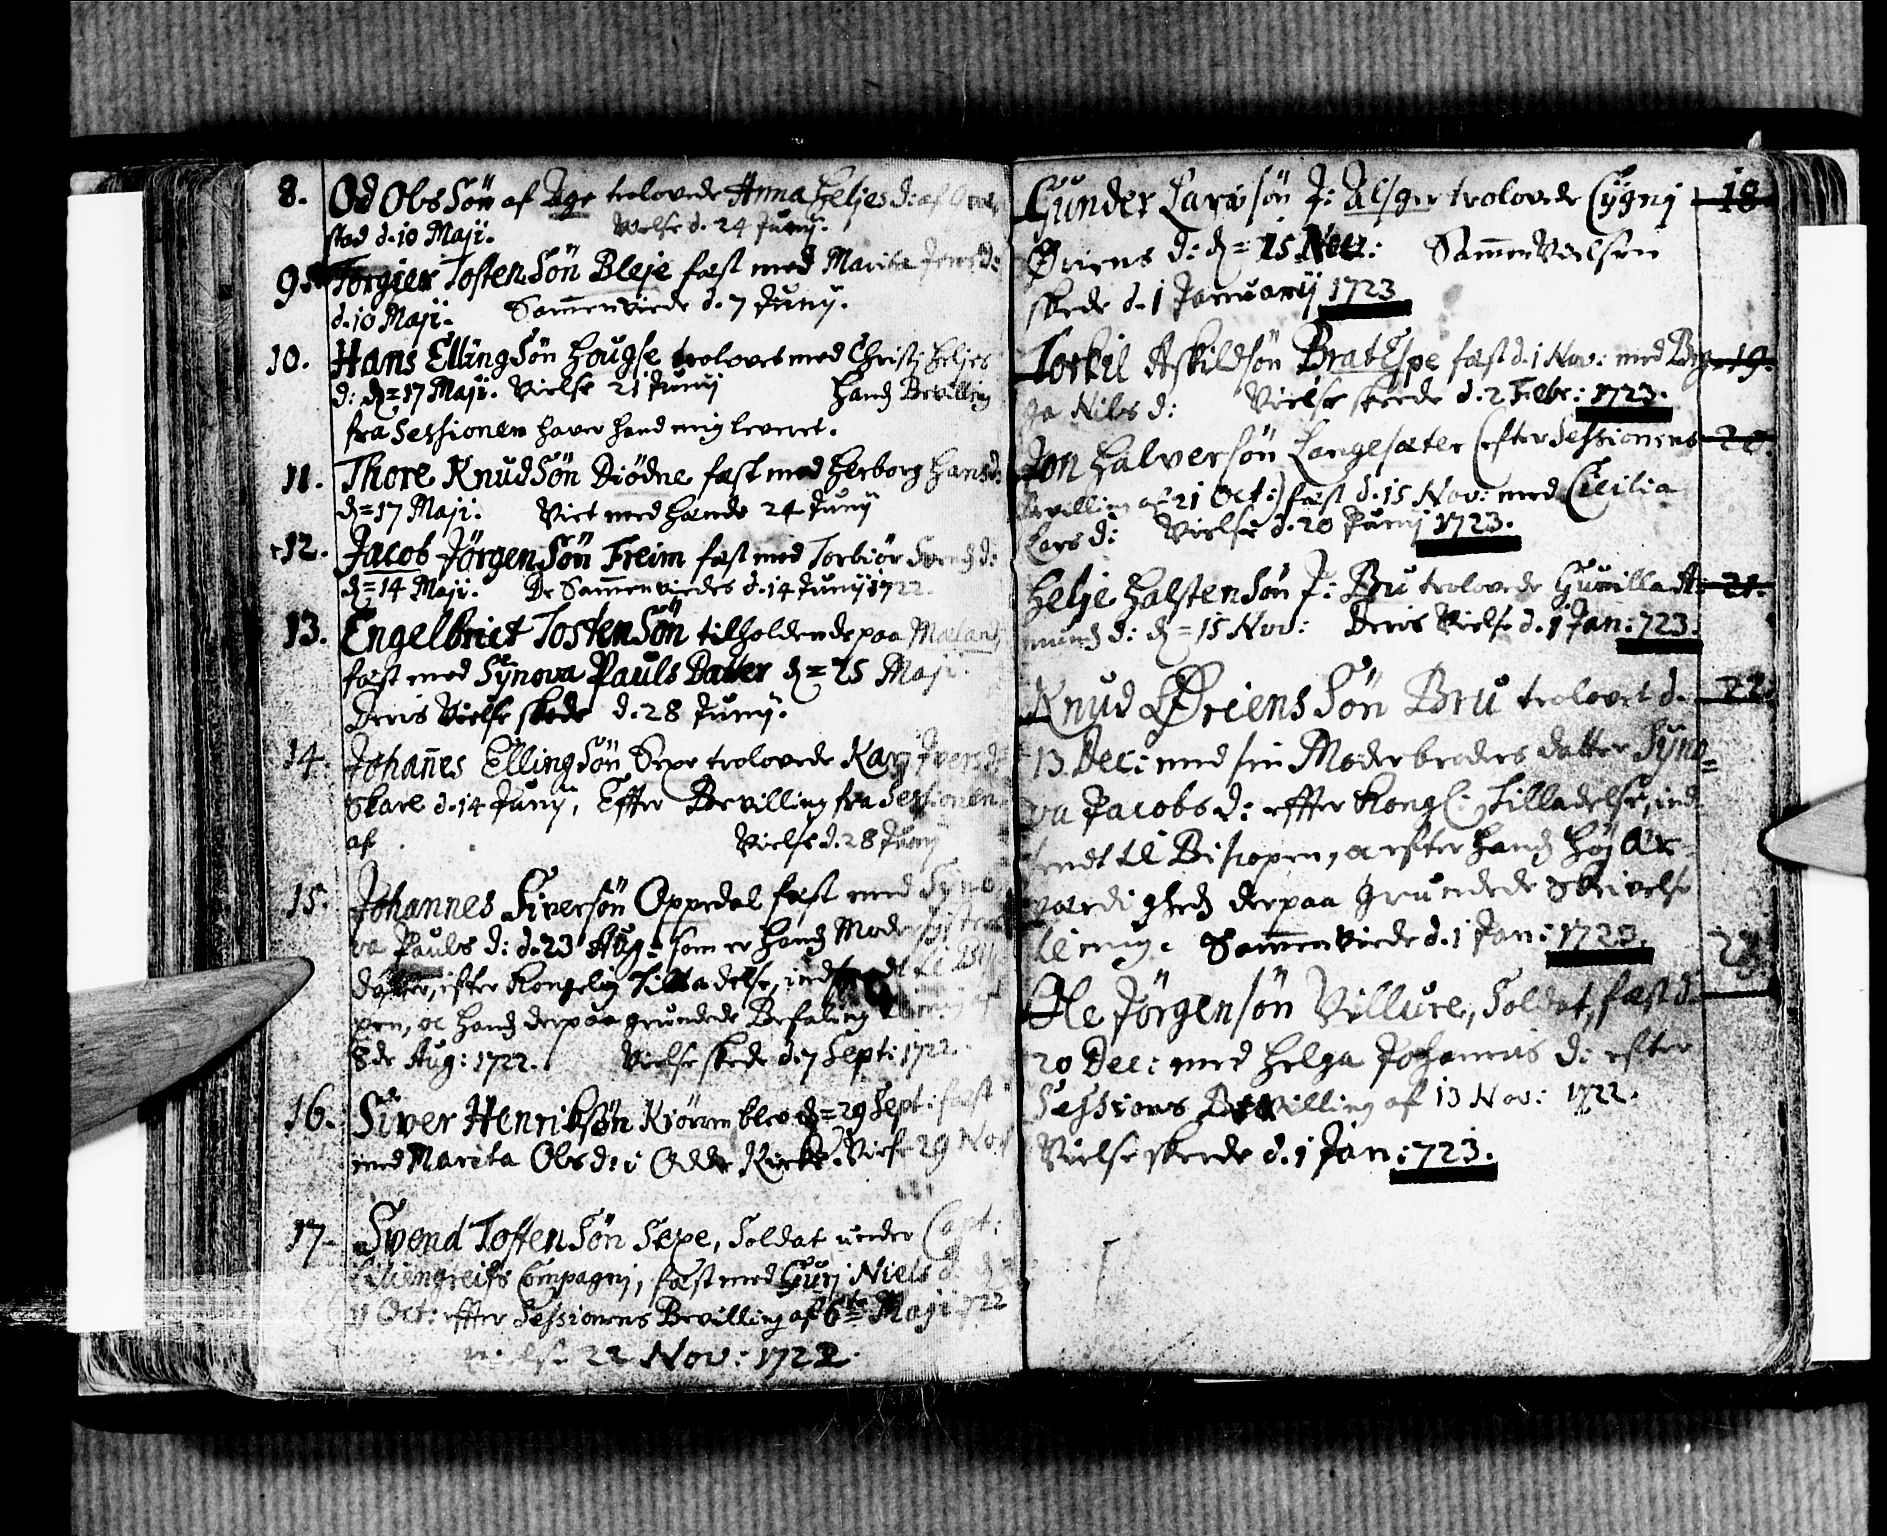 8. Od Olss Søn af Age trolovede Anna Heljes d: af
stad d. 10 Maji. Vielse d. 24 Junij.
9. Torgier Tosten Søn Bleje fæst med Marita Jens d:
d. 10 Maji. Sam̄enviede d. 7 Junij.
10. Hans Elling Søn Hougse troloves med Christj Heljes
d: d = 17 Maji. Vielse 21 Junij Hans Bevilling
fra Sessionen haver hand mig leveret.
11. Thore Knud Søn Diödne fæst med Herborg Hans d:
d = 17 Maji. Viet med hænde 24 Junij
12. Jacob Jörgen Søn Freim fæst med Torbiör Svens d:
d = 14 Maji. De Sam̄enviedes d. 14 Junij 1722.
13. Engelbrict Tosten Søn tilholdende paa
fæst med Synova Pauls Datter d = 25 Maji.
Deris Vielse skede d. 28 Junij.
14. Johan̄es Elling Søn Sexe trolovede Kari Ivers d:
Skare d. 14 Junij, Effter Bevilling fra Sessionen
af Vielse d. 28 Junij
15. Johannes Siversøn Oppedal fæst med Syno
va Pauls d: d. 23 Aug: som er hans Moder Sisters
datter, efter Kongelig Tilladelse, indsendt til Bis
pen, oc hans derpaa grundede Befaling
8de Aug: 1722. Vielse skede d. 7 Sept: 1722.
16. Siver Henriksøn Kiörren blev d = 29 Sept: fæst
med Marita Ols d: i Odde Kirke. Viese 29 Nov
17. Svend Tosten Søn Sexe, Soldat under Capt:
Compagnj, fæst med Guri Niels d.
11 Oct: effter Sessionens Bevilling af 6te Maji 722
Vielse 22 Nov: 1722.
Gunder Larsøn J: Alsger trolovede Cygnj 18
Øriens d: d = 15 Nov: Sam̄en Vielsen
skede d. 1 Januarij 1723
Torkil Askildsøn BratEspe fæst d. 1 Nov: med Brg 19.
ga Nils d: Vielse skeede d. 2 Febr: 1723.
Jon Halversøn Langesæter (efter Sessionens 20.
Bevilling af 21 Oct:) fæst d. 15 Nov: med Cicilia
Lars d: Vielse d. 20 Junij 1723.
Helje Halsten Søn J: Bru trolovede Gunilla A: 21.
munds d: d = 15 Nov: Deris Vielse d. 1 Jan: 723.
Knud Øriens Søn Bru trolovet d. 22.
13 Dec: med sin Moderbroders datter Syno=
va Jacobs d: effter Kongl: Tilladelse, ind
sendt til Bispen, oc efter hans Høj Ær
værdigheds derpaa grundede Skrivelse
til mig. Sam̄enviede d. 1 Jan: 1723. 23
Ole Jörgensøn Villure, Soldat, fæst d
20 Dec: med Helga Johannis d: efter
Sessions Bevilling af 13 Nov: 1722.
Vielse skeede d. 1 Jan: 723.